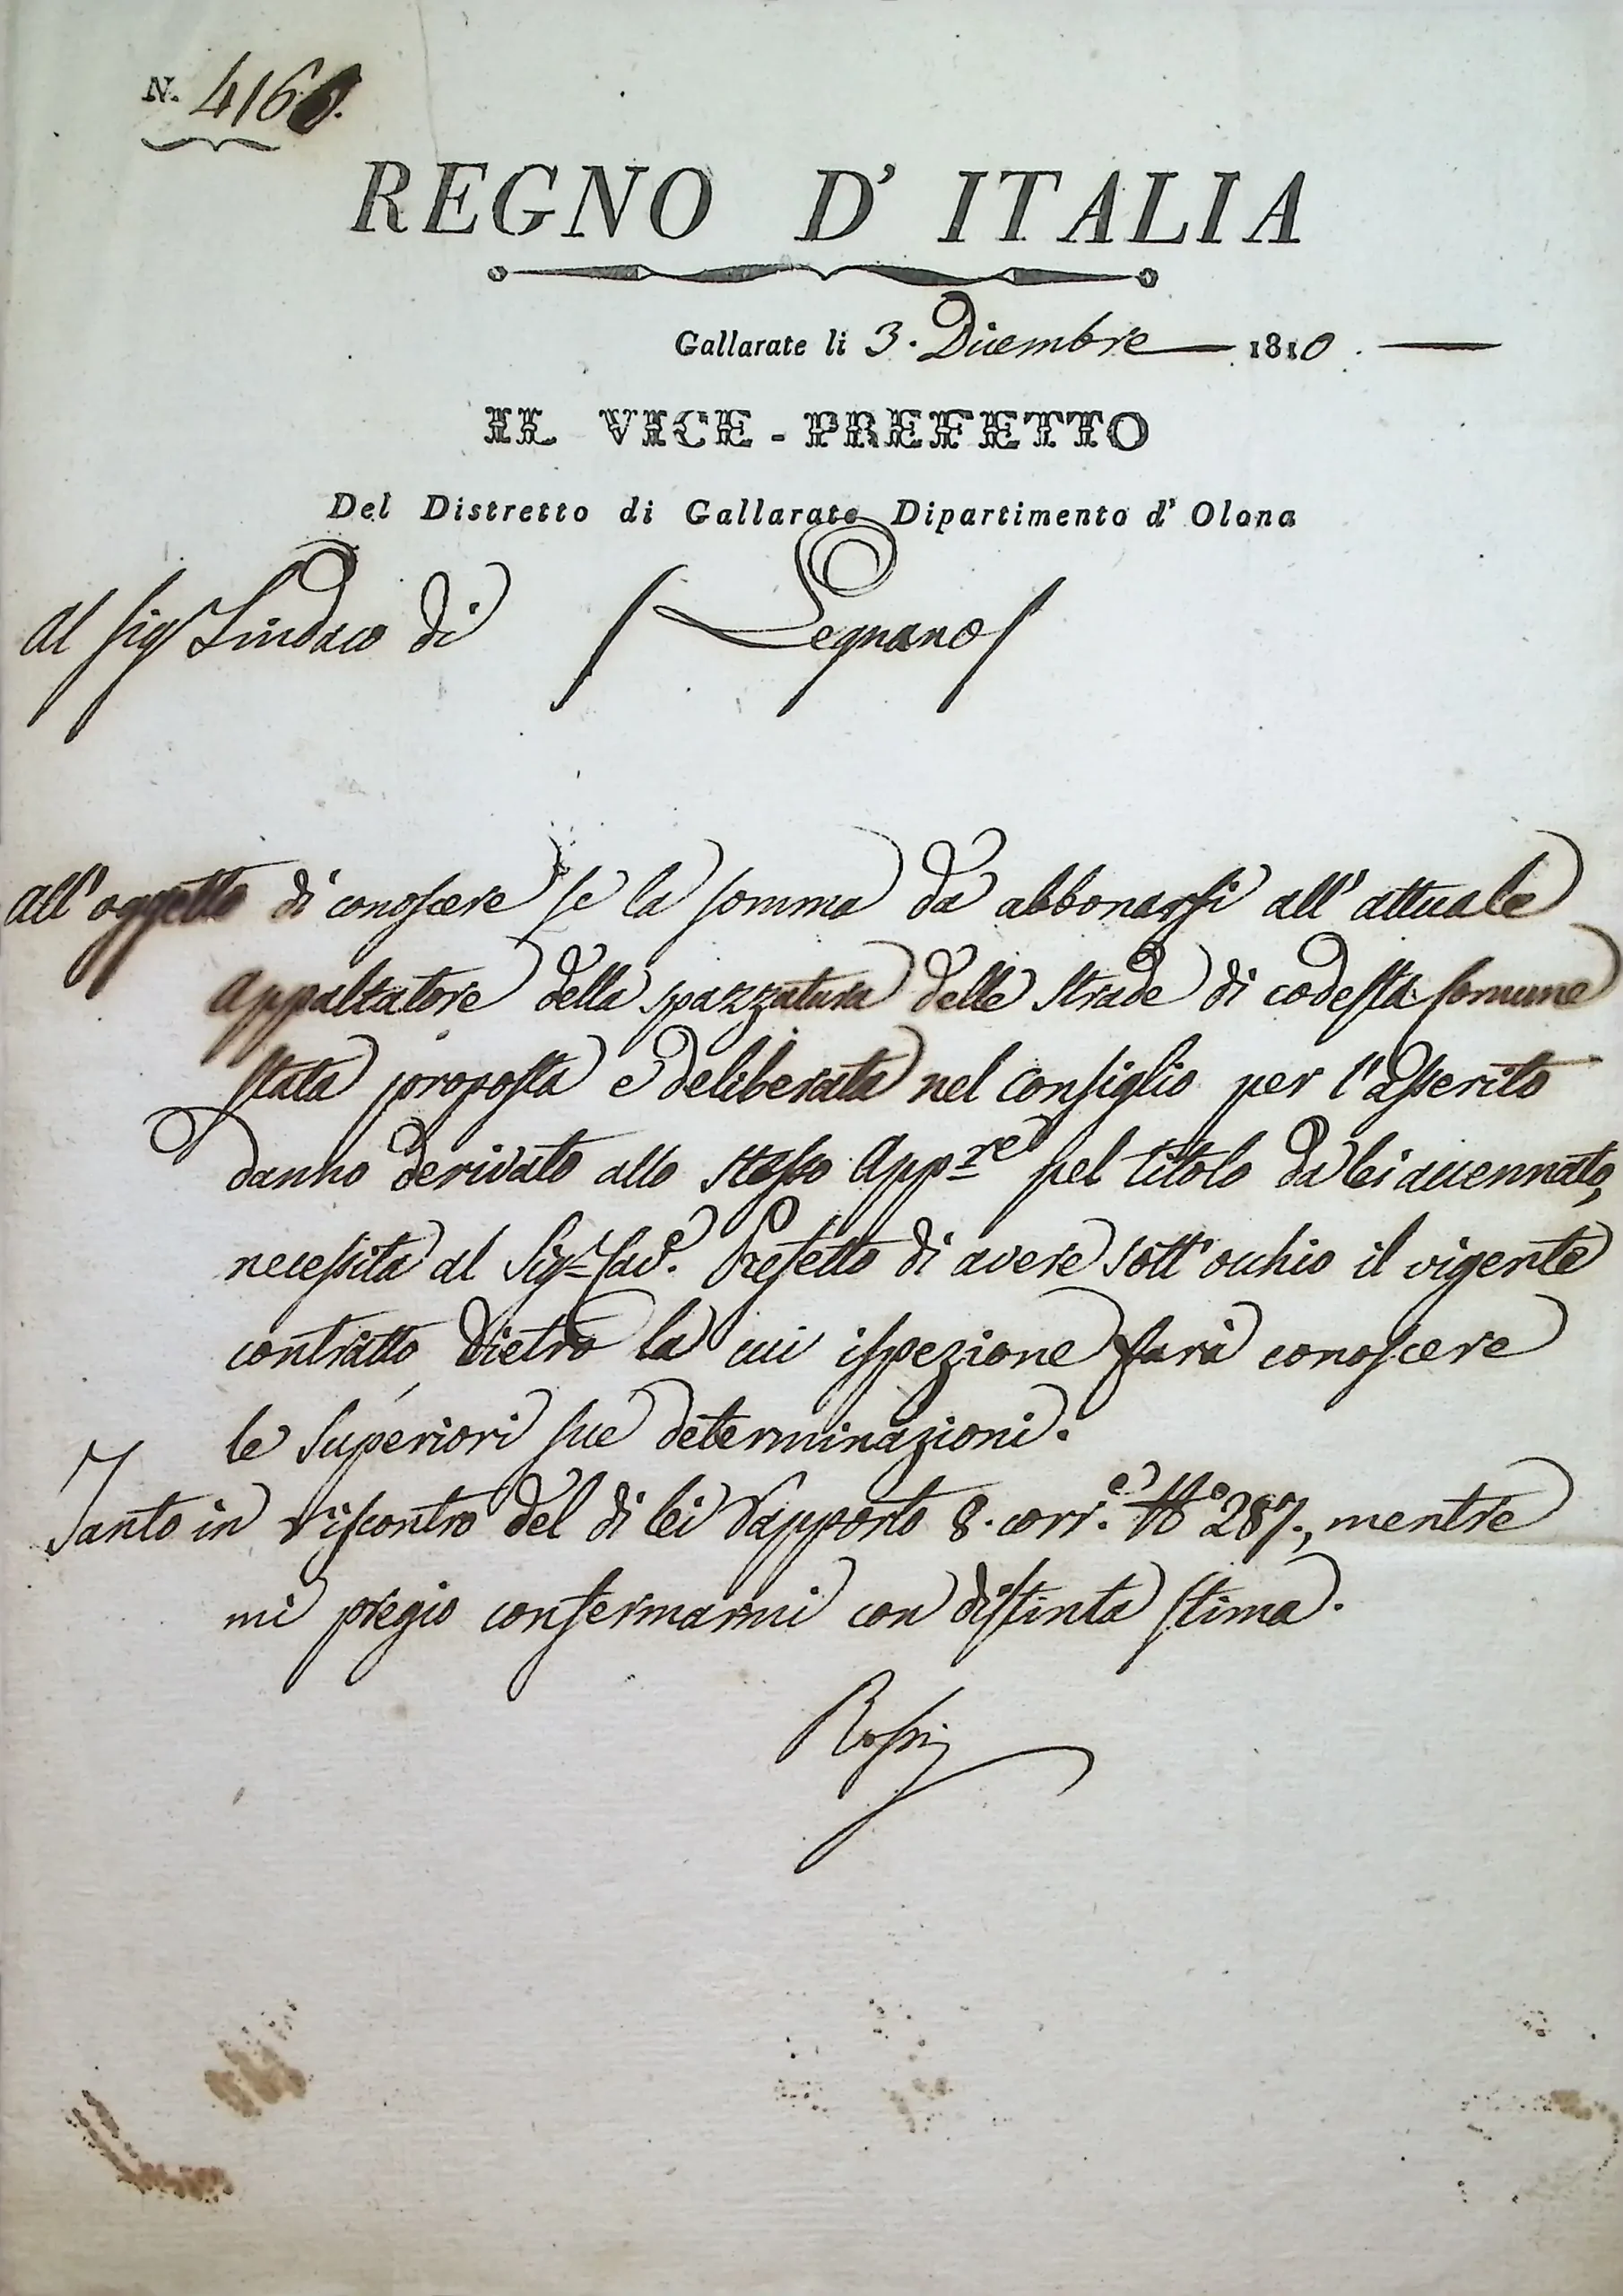 N. 4160.
REGNO D' ITALIA
Gallarate li 3. Dicembre 1810.
IL VICE-PREFETTO
Del Distretto di Gallarate Dipartimento d' Olona
Al Sig.r Sindaco di Legnano
All'oggetto di conoscere se la somma da abbonarsi all'attuale
Appaltatore della spazzatura delle Strade di codesta Comune
stata proposta e deliberata nel Consiglio per l'asserito
danno derivato allo stesso App.re pel titolo da lei accennato,
necessita al Sig.r Cav.e Prefetto di avere sott'occhio il vigente
contratto, dietro la cui ispezione farà conoscere
le Superiori sue determinazioni.
Tanto in riscontro del di lei Rapporto 8. corr.e N.o 287., mentre
mi pregio confermarmi con distinta stima.
Rossi